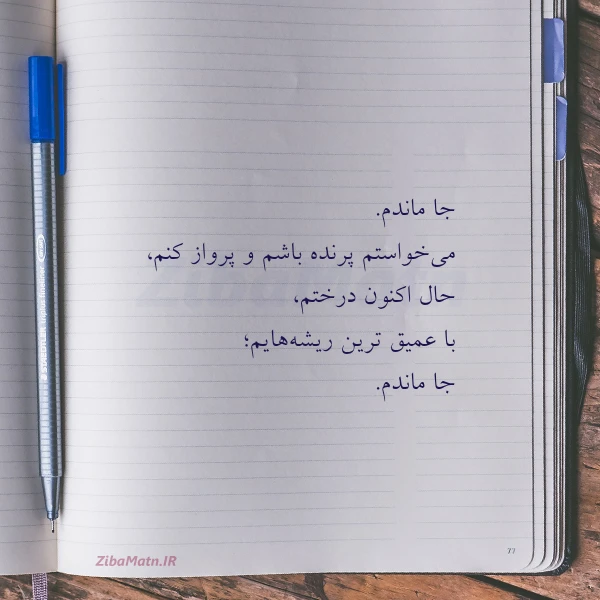 جا ماندم.
می‌خواستم پرنده باشم و پرواز کنم،
حال اکنون درختم،
با عمیق ترین ریشه‌هایم؛
جا ماندم.
ZibaMatn.IR